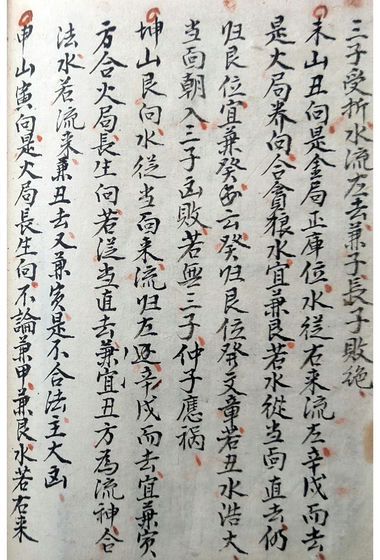 三子受折水流左去兼子長子敗絶
未山丑向是金局正庫位水從右来流左辛戌而去
是火局养向合貪狼水宜兼艮若水從当面直去仍
归艮位宜兼癸丑云癸归艮位發文章若丑水浩大
当面朝入三子凶敗若無三子仲子應祸
坤山艮向水從当面来流归左边辛戌而去宜兼寅
方合火局長生向若從当直去兼宜丑方為流神合
法水若流来兼丑去又兼寅是不合法主大凶
申山寅向是火局長生向不論兼甲兼艮水若右来